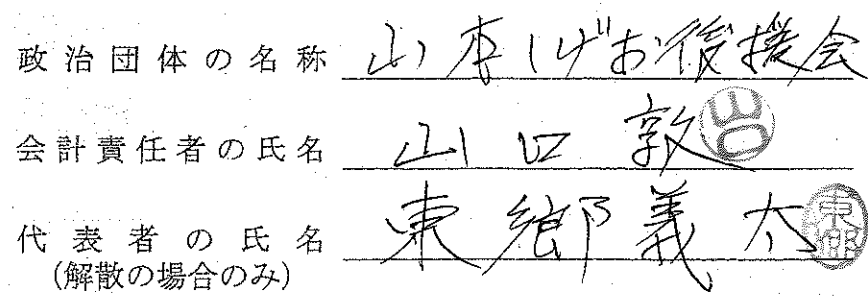 政治団体の名称 山本しげお後援会
会計責任者の氏名 山口 敦 山口
代表者の氏名 東郷義太 東郷
(解散の場合のみ)